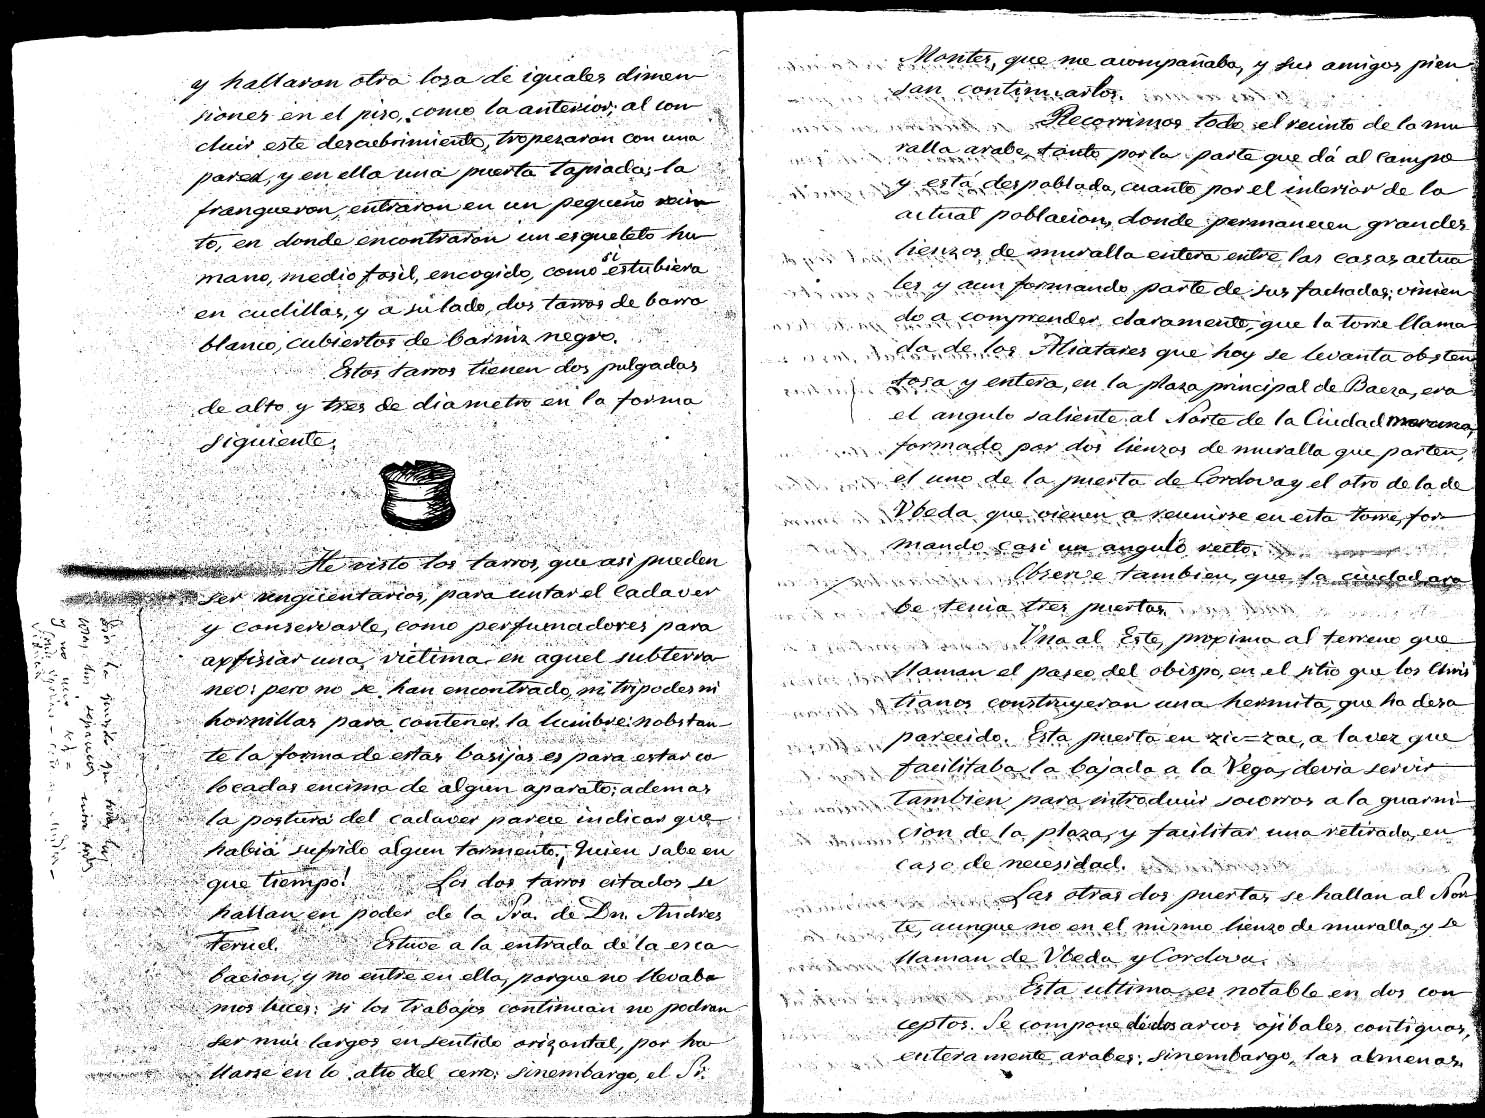 y hallaron otra losa de iguales dimen-
siones en el piso, como la anterior; al con-
cluir este descubrimiento, tropezaron con una
pared, y en ella una puerta tapiada; la
franqueron, entraron en un pequeño recin-
to, en donde encontraron un esqueleto hu-
mano, medio fosil, encogido, como si estubiera
en cuclillas, y a su lado, dos tarros de barro
blanco, cubiertos de barniz negro.
Estos tarros tienen dos pulgadas
de alto y tres de diametro en la forma
siguiente:
He visto los tarros, que asi pueden
ser ungüentarios, para untar el cadaver
y conservarle, como perfumadores para
apfisiar una victima en aquel subterra-
neo: pero no se han encontrado, ni tripodes ni
hornillas para contener la lumbre: nobstan-
te la forma de estas basijas es para estar co-
locadas encima de algun aparato; ademas
la postura del cadaver parece indicar que
habia sufrido algun tormento. ¡Quien sabe en
que tiempo! Los dos tarros citados se
hallan en poder de la Sra. de Dn. Andres
Teruel. Estuve a la entrada de la esca-
bacion, y no entre en ella, porque no llevaba-
mos luces: si los trabajos continuan no podran
ser mas largos en sentido orizontal, por ha-
llarse en lo alto del cerro: sinembargo, el Sr.
Montes, que me acompañaba, y sus amigos pien-
san continuarlos.
Recorrimos todo el recinto de la mu-
ralla arabe, tanto por la parte que dá al campo
y está despoblada, cuanto por el interior de la
actual poblacion, donde permanecen grandes
lienzos de muralla entera entre las casas actua-
les y aun formando parte de sus fachadas; vinien-
do a comprender claramente, que la torre llama-
da de los Aliatares que hoy se levanta obsten-
tosa y entera, en la plaza principal de Baeza, era
el angulo saliente al Norte de la Ciudad moruna,
formado por dos lienzos de muralla que parten,
el uno de la puerta de Cordova y el otro de la de
Vbeda que vienen a reunirse en esta torre, for-
mando casi un angulo recto.
Observe tambien, que la ciudad ara-
be tenia tres puertas.
Una al Este, proxima al terreno que
llaman el paseo del obispo, en el sitio que los Chris-
tianos construyeron una hermita, que ha desa-
parecido. Esta puerta en zic=zac, a la vez que
facilitaba la bajada a la Vega, devia servir
tambien para introducir socorros a la guarni-
cion de la plaza, y facilitar una retirada, en
caso de necesidad.
Las otras dos puertas se hallan al Nor-
te, aunque no en el mismo lienzo de muralla, y se
llaman de Vbeda y Cordova.
Esta ultima es notable en dos con-
ceptos. Se compone de dos arcos ojibales contiguos,
enteramente arabes; sinembargo, las almenas,